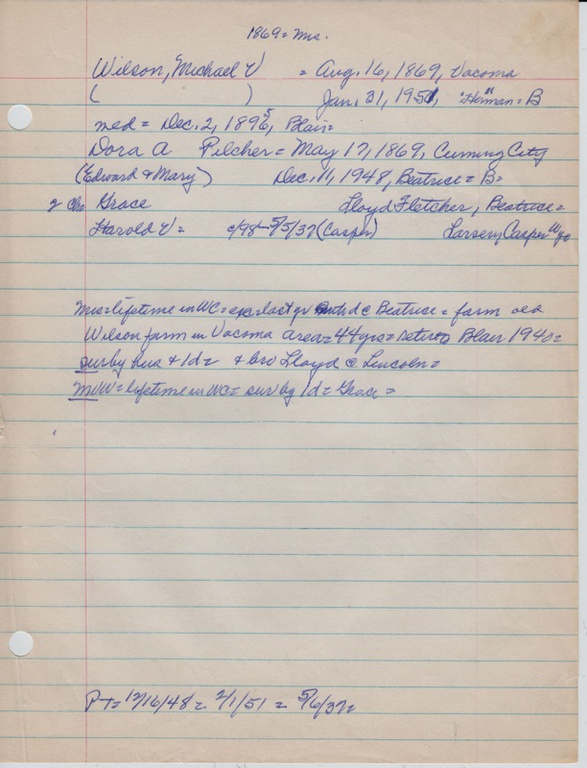 1869 = Mrs.
Wilson, Michael V = Aug. 16, 1869, Vacoma
( ) Jan. 31, 1951, "Herman" = B
med = Dec. 2, 1895, Blair =
Dora A Pilcher = May 17, 1869, Cuming City
(Edward & Mary) Dec. 11, 1948, Beatrice = B =
2 ch: Grace Lloyd Fletcher, Beatrice =
Harold V = c/98 - 5/5/37 (Casper) Larsen, Casper Wyo
Mrs = lifetime in WC = exc last yr d @ Beatrice = farm
Wilson farm in Vacoma area = 44 yrs = retired Blair 1940 =
sur by hus & 1d = & bro Lloyd @ Lincoln =
MVW = lifetime in WC = sur by 1d = Grace =
PT = 12/16/48 = 2/1/51 = 5/6/37 =